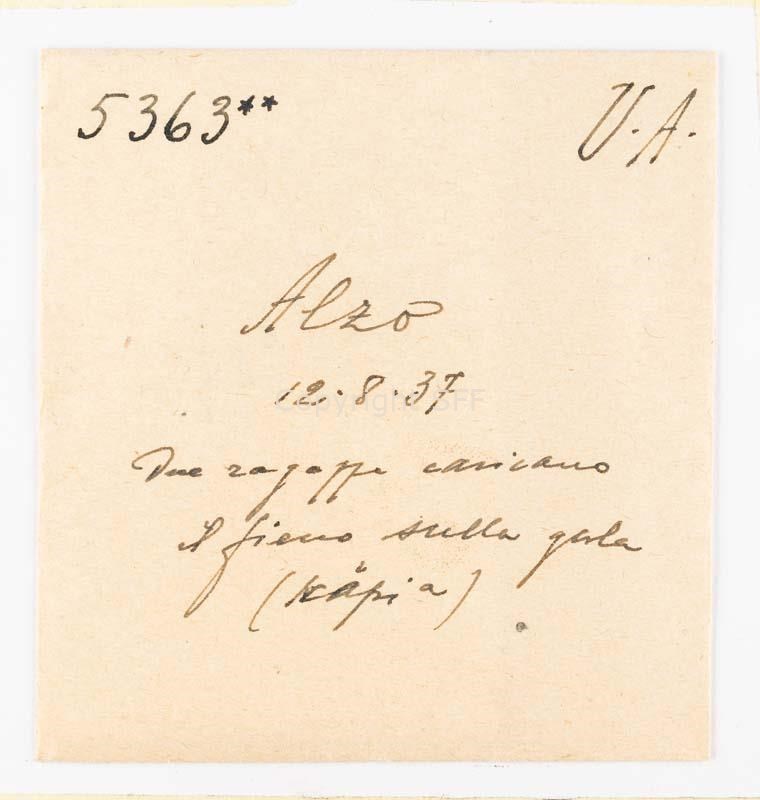 5363** U.A.
Alzo
12.8.37
Copyright SFF
Due ragazze caricano
il fieno sulla gerla
(käpia)